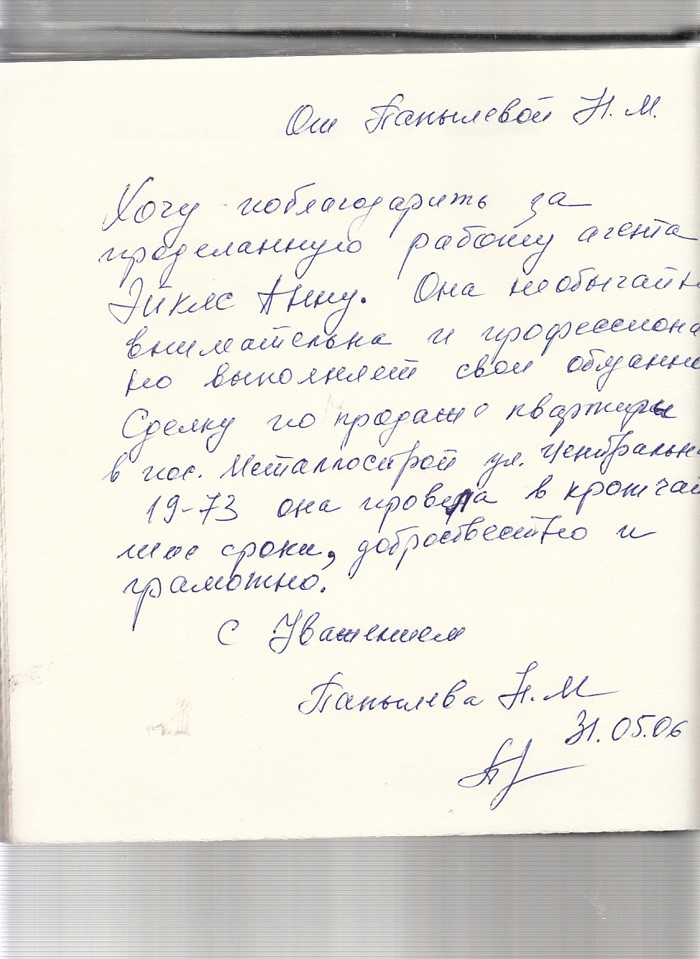 От Папылевой Н.М.
Хочу поблагодарить за
проделанную работу агента
Эйкляс Анну. Она необычайн
внимательна и профессиона
но выполняет свои обязанно
Сделку по продаже квартиры
в пос. Металлострой ул. Центральн
19-73 она провела в кротчай
шие сроки, добросвестно и
грамотно.
С Уважением
Папылева Н.М
31.05.06